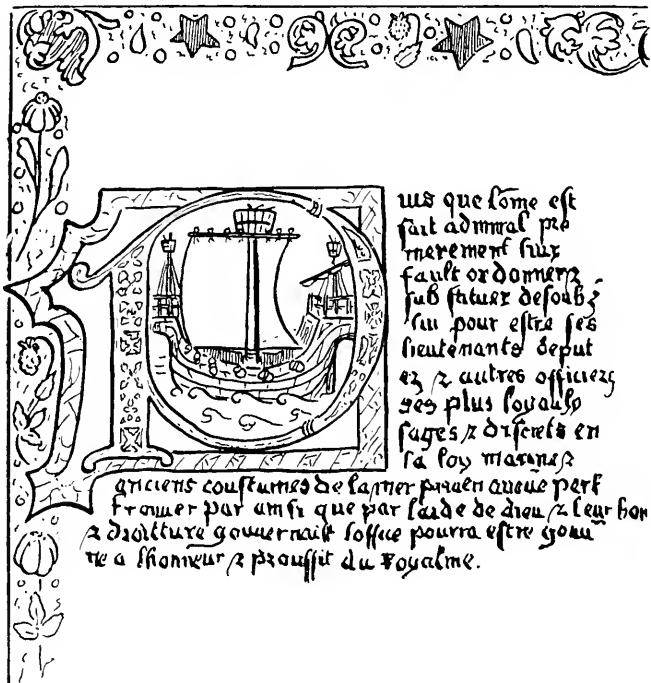 Puis que lome est
fait admiral pre
mierement luy
fault ordonner &
substituer desoubz
lui pour estre ses
lieutenants deput
ez & autres officiers
des plus loyaulx
sages & discrets en
la loy marine &
anciens coustumes de la mer
trouver par ainsi que par laide de dieu & leur bon
& droitture gouvernail loffice pourra estre gouv
ne a lhonneur & prouffit du royalme.